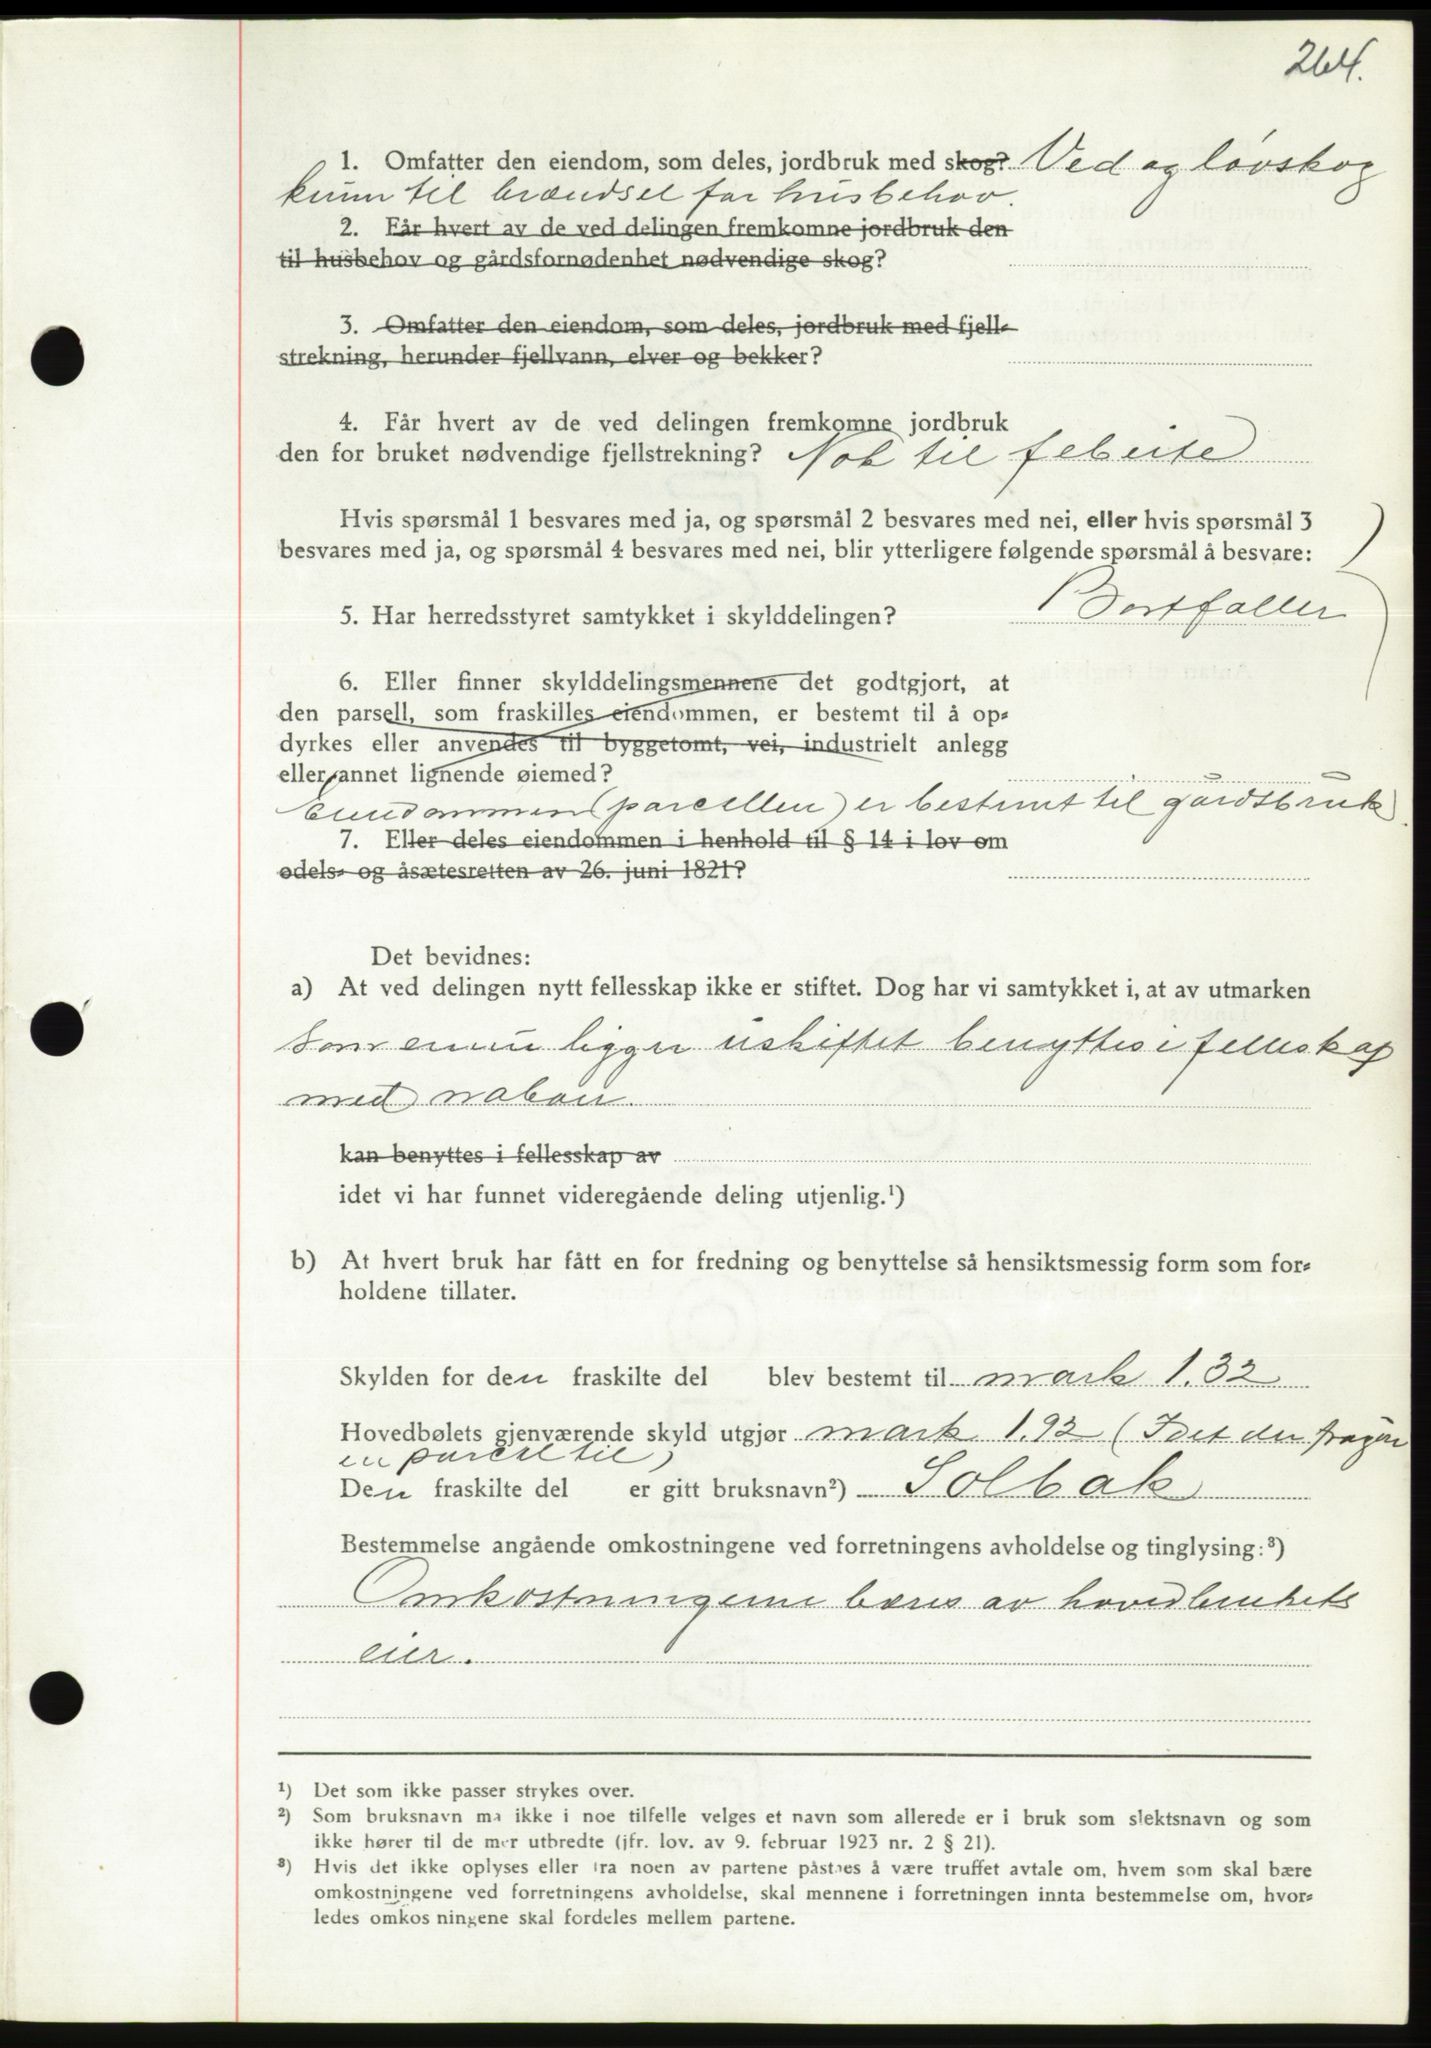 264.
1. Omfatter den eiendom, som deles, jordbruk med skog? Ved og løvskog
kun til brændsel for husbehov.
2. Får hvert av de ved delingen fremkomne jordbruk den
til husbehov og gårdsfornødenhet nødvendige skog?
3. Omfatter den eiendom, som deles, jordbruk med fjell-
strekning, herunder fjellvann, elver og bekker?
4. Får hvert av de ved delingen fremkomne jordbruk
den for bruket nødvendige fjellstrekning? Nok til febeite
Hvis spørsmål 1 besvares med ja, og spørsmål 2 besvares med nei, eller hvis spørsmål 3
besvares med ja, og spørsmål 4 besvares med nei, blir ytterligere følgende spørsmål å besvare:
5. Har herredsstyret samtykket i skylddelingen? Bortfaller
6. Eller finner skylddelingsmennene det godtgjort, at
den parsell, som fraskilles eiendommen, er bestemt til å op-
dyrkes eller anvendes til byggetomt, vei, industrielt anlegg
eller annet lignende øiemed?
Eiendommen (parcellen) er bestemt til gårdsbruk.
7. Eller deles eiendommen i henhold til § 14 i lov om
odels- og åsætesretten av 26. juni 1821?
Det bevidnes:
a) At ved delingen nytt fellesskap ikke er stiftet. Dog har vi samtykket i, at av utmarken
som ennu ligger uskiftet benyttes i felleskap
med naboer.
kan benyttes i fellesskap av
idet vi har funnet videregående deling utjenlig.¹)
b) At hvert bruk har fått en for fredning og benyttelse så hensiktsmessig form som for-
holdene tillater.
Skylden for den fraskilte del blev bestemt til mark 1.32
Hovedbølets gjenværende skyld utgjør mark 1.92 (Idet der fragår
en parcel til)
Den fraskilte del er gitt bruksnavn²) Solbak
Bestemmelse angående omkostningene ved forretningens avholdelse og tinglysing:³)
Omkostningerne bæres av hovedbrukets
eier.
¹) Det som ikke passer strykes over.
²) Som bruksnavn ma ikke i noe tilfelle velges et navn som allerede er i bruk som slektsnavn og som
ikke hører til de mer utbredte (jfr. lov. av 9. februar 1923 nr. 2 § 21).
³) Hvis det ikke oplyses eller fra noen av partene påstaes å være truffet avtale om, hvem som skal bære
omkostningene ved forretningens avholdelse, skal mennene i forretningen innta bestemmelse om, hvor-
ledes omkos ningene skal fordeles mellem partene.